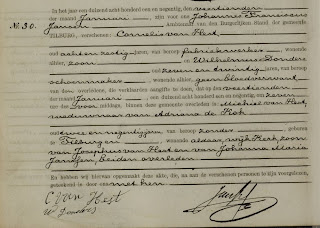 In het jaar een duizend acht honderd een en negentig, den veertienden
der maand Januari, zijn voor ons Johannes Franciscus
№ 30. Jansen Ambtenaar van den Burgerlijken Stand der gemeente
TILBURG, verschenen: Cornelis van Hest
oud acht en zestig jaren, van beroep fabriekwerker, wonende
alhier, zoon en Wilhelmus Donders
oud zeven en twintig jaren, van beroep
schoenmaker, wonende alhier, geen bloedverwant
van den overledene, die verklaarden aangifte te doen, dat op den veertienden
der maand Januari, een duizend acht honderd een en negentig, des
ten ure middags, binnen deze gemeente overleden is Michiel van Hest,
weduwnaar van Adriana de Kok
oud twee en negentig jaren, van beroep zonder, geboren
te Tilburg en wonende aldaar, wijk Kerk, zoon
van Josephus van Hest en van Johanna Maria
Janssen, beiden overleden
En hebben wij hiervan opgemaakt deze akte, die, na aan de verschenen personen te zijn voorgelezen,
geteekend is door ons met hen
C van Hest
W Donders